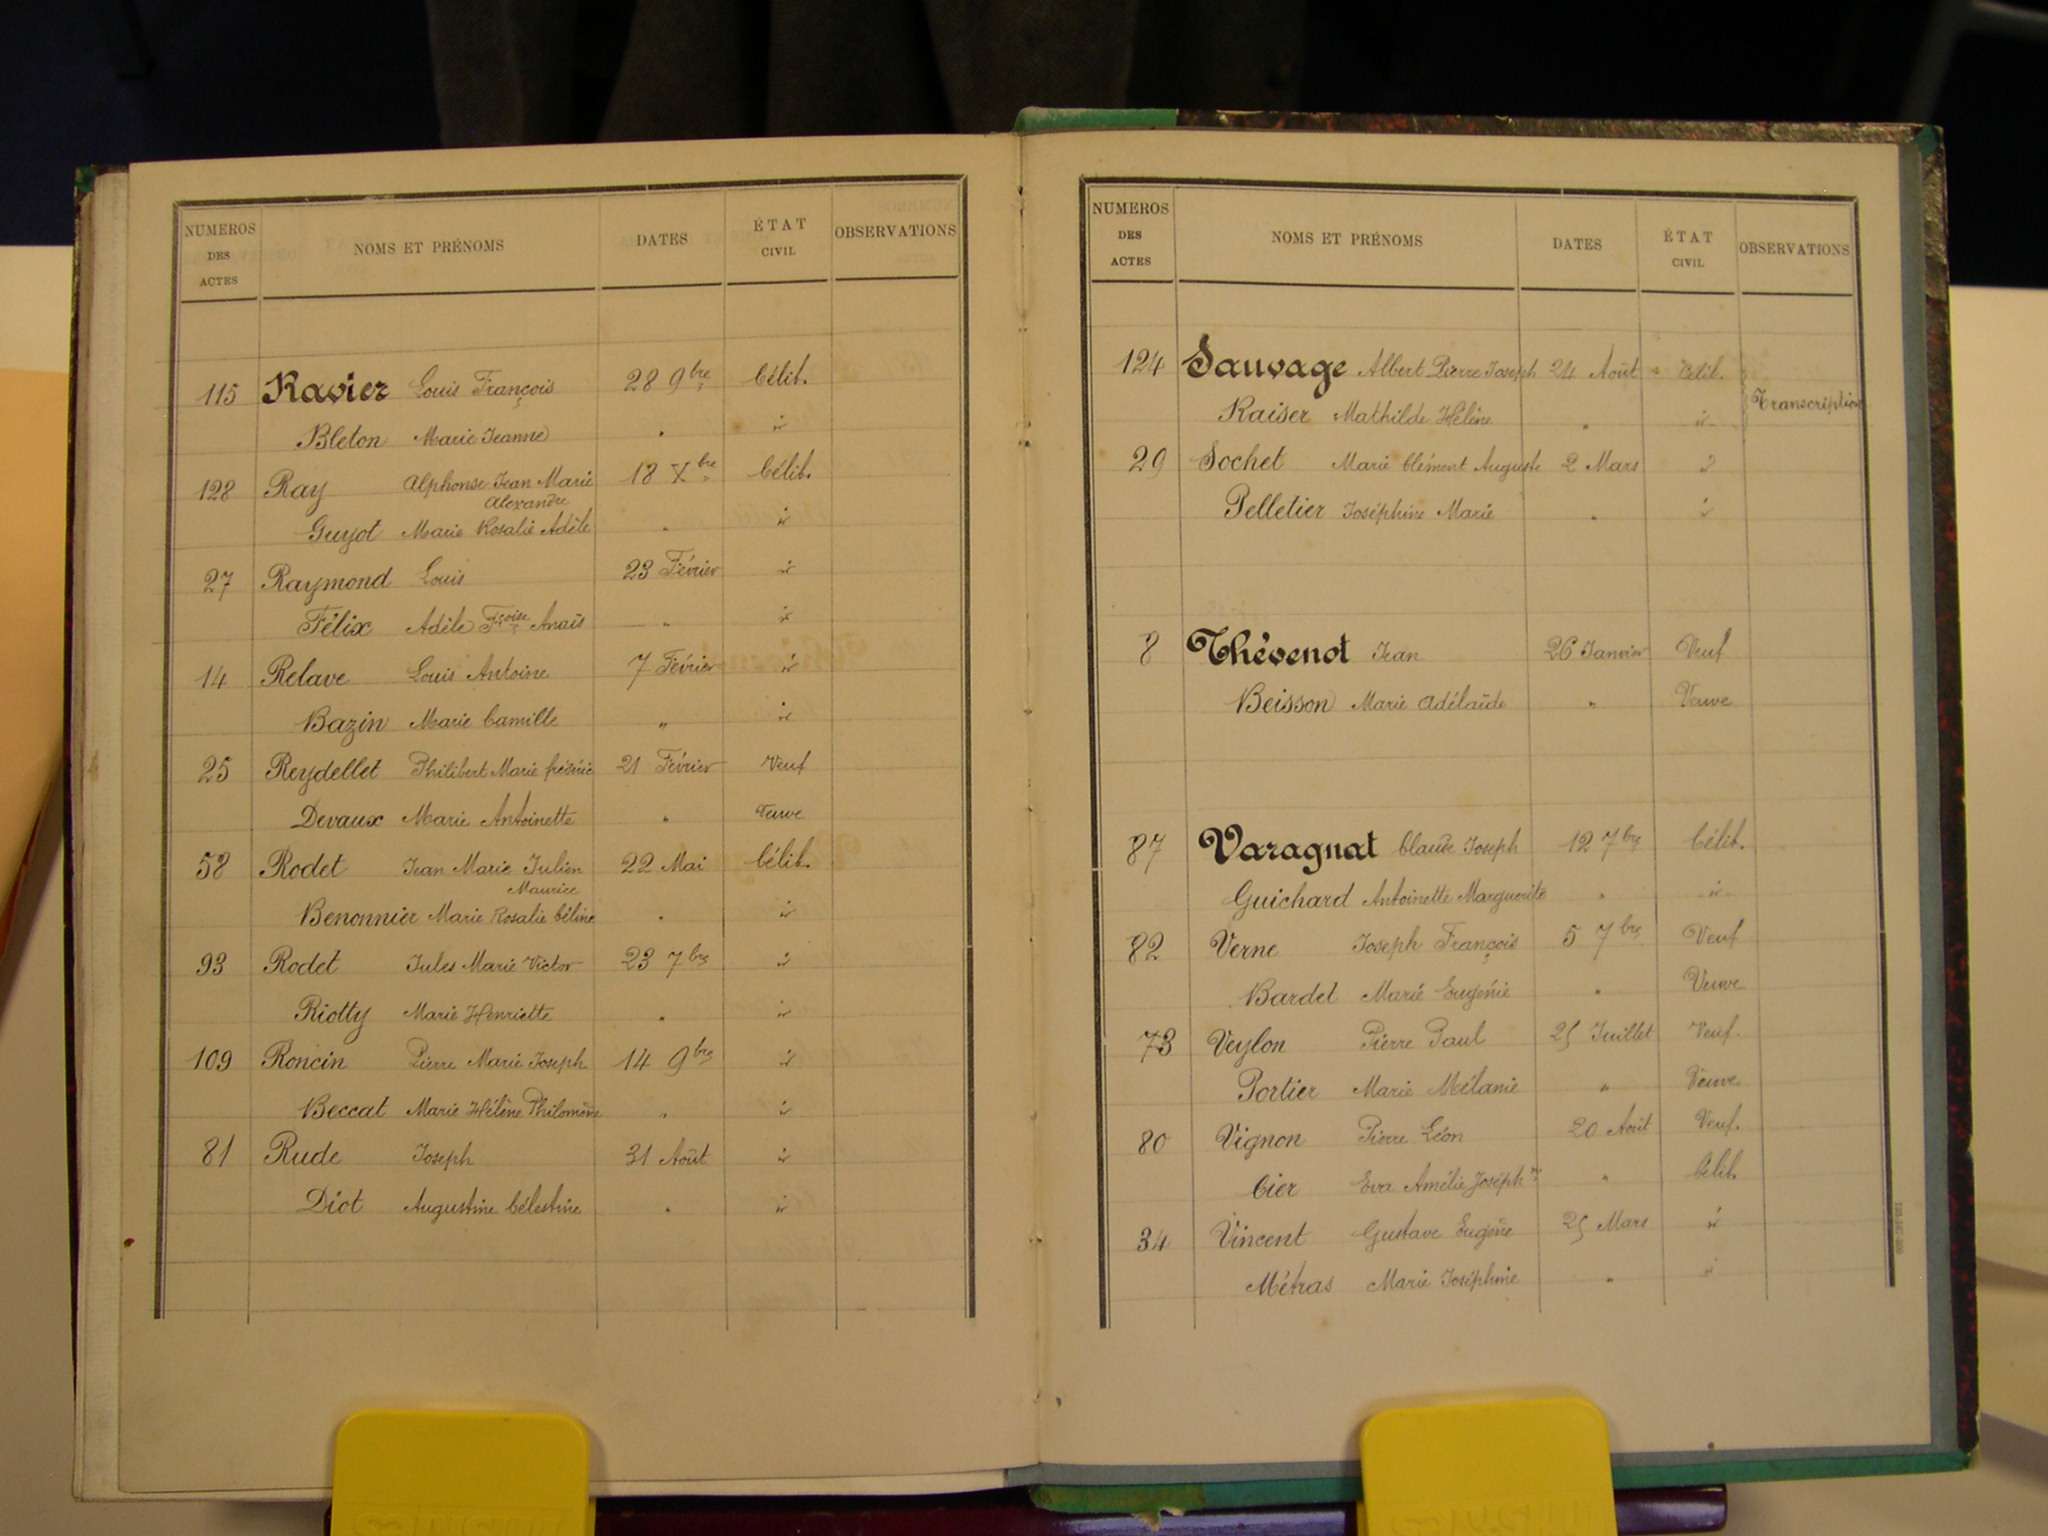 NUMEROS DES ACTES NOMS ET PRÉNOMS DATES ÉTAT CIVIL OBSERVATIONS
115 Ravier Louis François 28 9bre Célib.
Bleton Marie Jeanne " id
128 Ray Alphonse Jean Marie 18 Xbre Célib.
Alexandre
Guyot Marie Rosalie Adèle " id
27 Raymond Louis 23 Février id
Félix Adèle Fçoise Anaïs " id
14 Relave Louis Antoine 7 Février id
Bazin Marie Camille " id
25 Reydellet Philibert Marie frédéric 21 Février Veuf
Devaux Marie Antoinette " Veuve
58 Rodet Jean Marie Julien 22 Mai Célib.
Maurice
Benonnier Marie Rosalie Céline " id
93 Rodet Jules Marie Victor 23 7bre id
Riotty Marie Henriette " id
109 Roncin Pierre Marie Joseph 14 9bre id
Beccat Marie Hélène Philomène " id
81 Rude Joseph 31 Août id
Diot Augustine Célestine " id
NUMEROS DES ACTES NOMS ET PRÉNOMS DATES ÉTAT CIVIL OBSERVATIONS
124 Sauvage Albert Pierre Joseph 24 Août Célib.
Transcription
Kaiser Mathilde Hélène " id
29 Sochet Marie Clément Auguste 2 Mars id
Pelletier Joséphine Marie " id
8 Thévenot Jean 26 Janvier Veuf
Beisson Marie Adélaïde " Veuve
87 Varagnat Claude Joseph 12 7bre Célib.
Guichard Antoinette Marguerite " id
82 Verne Joseph François 5 7bre Veuf
Bardet Marie Eugénie " Veuve
73 Veylon Pierre Paul 25 Juillet Veuf.
Portier Marie Mélanie " Veuve
80 Vignon Pierre Léon 20 Août Veuf.
Cier Eva Amélie Joséphne " Célib.
34 Vincent Gustave Eugène 25 Mars id
Métras Marie Joséphine " id